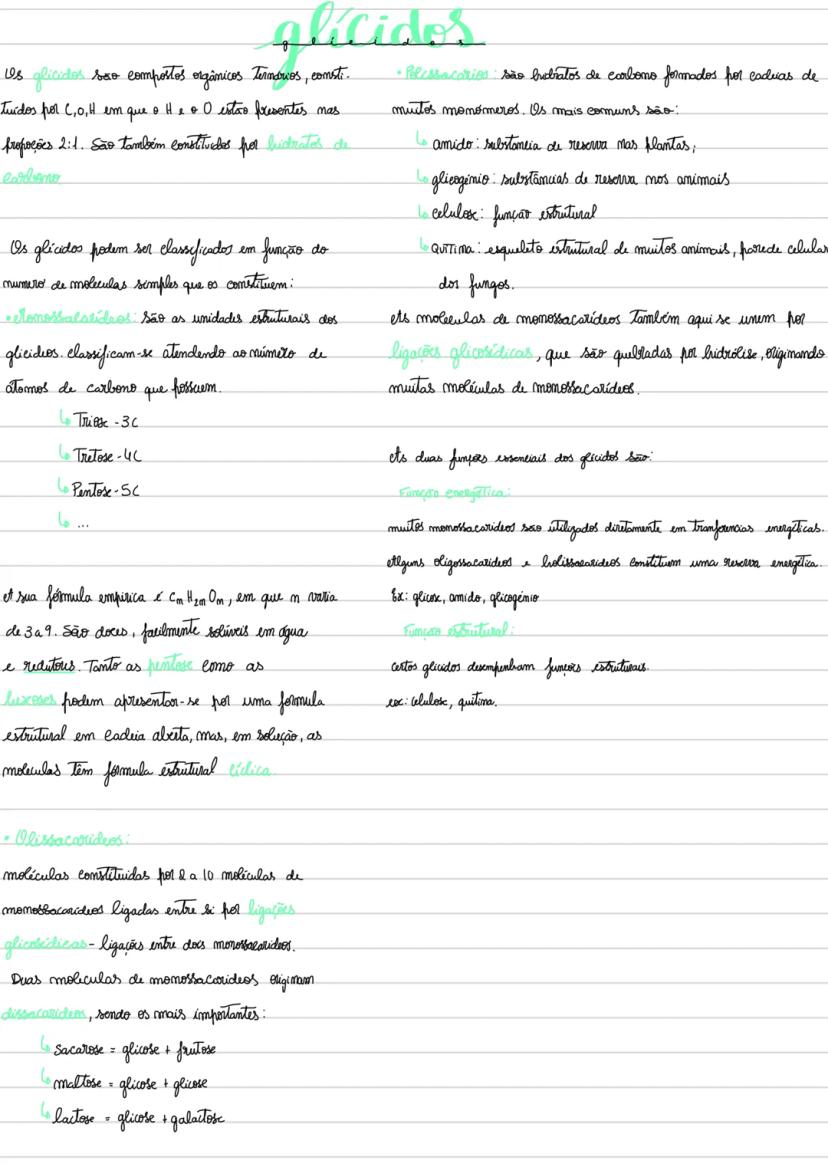 glícidos
glícidos
Os glícidos são compostos orgânicos ternários, consti-
tuídos por C,O,H em que o H e o O estão presentes nas
proporções 2:1. São também constituídos por hidratos de
carbono
Os glícidos podem ser classificados em função do
numero de moleculas simples que os constituem:
• Monossacarídeos: São as unidades estruturais dos
glicideos. classificam-se atendendo ao número de
átomos de carbono que possuem.
↳ Triose - 3C
↳ Tretose - 4C
↳ Pentose - 5C
↳ ...
A sua fórmula empirica é CnH2nOn, em que n varia
de 3 a 9. São doces, facilmente solúveis em água
e redutores. Tanto as pentose como as
hexoses podem apresentar-se por uma formula
estrutural em cadeia aberta, mas, em solução, as
moleculas têm fórmula estrutural cíclica.
• Olissacarideos:
moléculas constituidas por 2 a 10 moléculas de
monossacarideos ligadas entre si por ligações
glicosídicas - ligações entre dois monossacarideos.
Duas moleculas de monossacarideos originam
dissacarideos, sendo os mais importantes:
↳ Sacarose = glicose + frutose
↳ maltose = glicose + glicose
↳ lactose = glicose + galactose
• Polissacarios: são hidratos de carbono formados por cadeias de
muitos monómeros. Os mais comuns são:
↳ amido: substancia de reserva nas plantas;
↳ glicogénio: substâncias de reserva nos animais
↳ celulose: função estrutural
↳ quitina: esqueleto estrutural de muitos animais, parede celular
dos fungos.
As moleculas de monossacarídeos também aqui se unem por
ligações glicosídicas, que são quebradas por hidrólise, originando
muitas moléculas de monossacarídeos.
As duas funções essenciais dos glícidos são:
Função energética:
muitos monossacarideos são utilizados diretamente em tranferencias energéticas.
Alguns oligossacarideos e polissacarideos constituem uma reserva energética.
Ex: glicose, amido, glicogénio
Função estrutural:
certos glicidos desempenham funçoes estruturais.
ex: celulose, quitina.